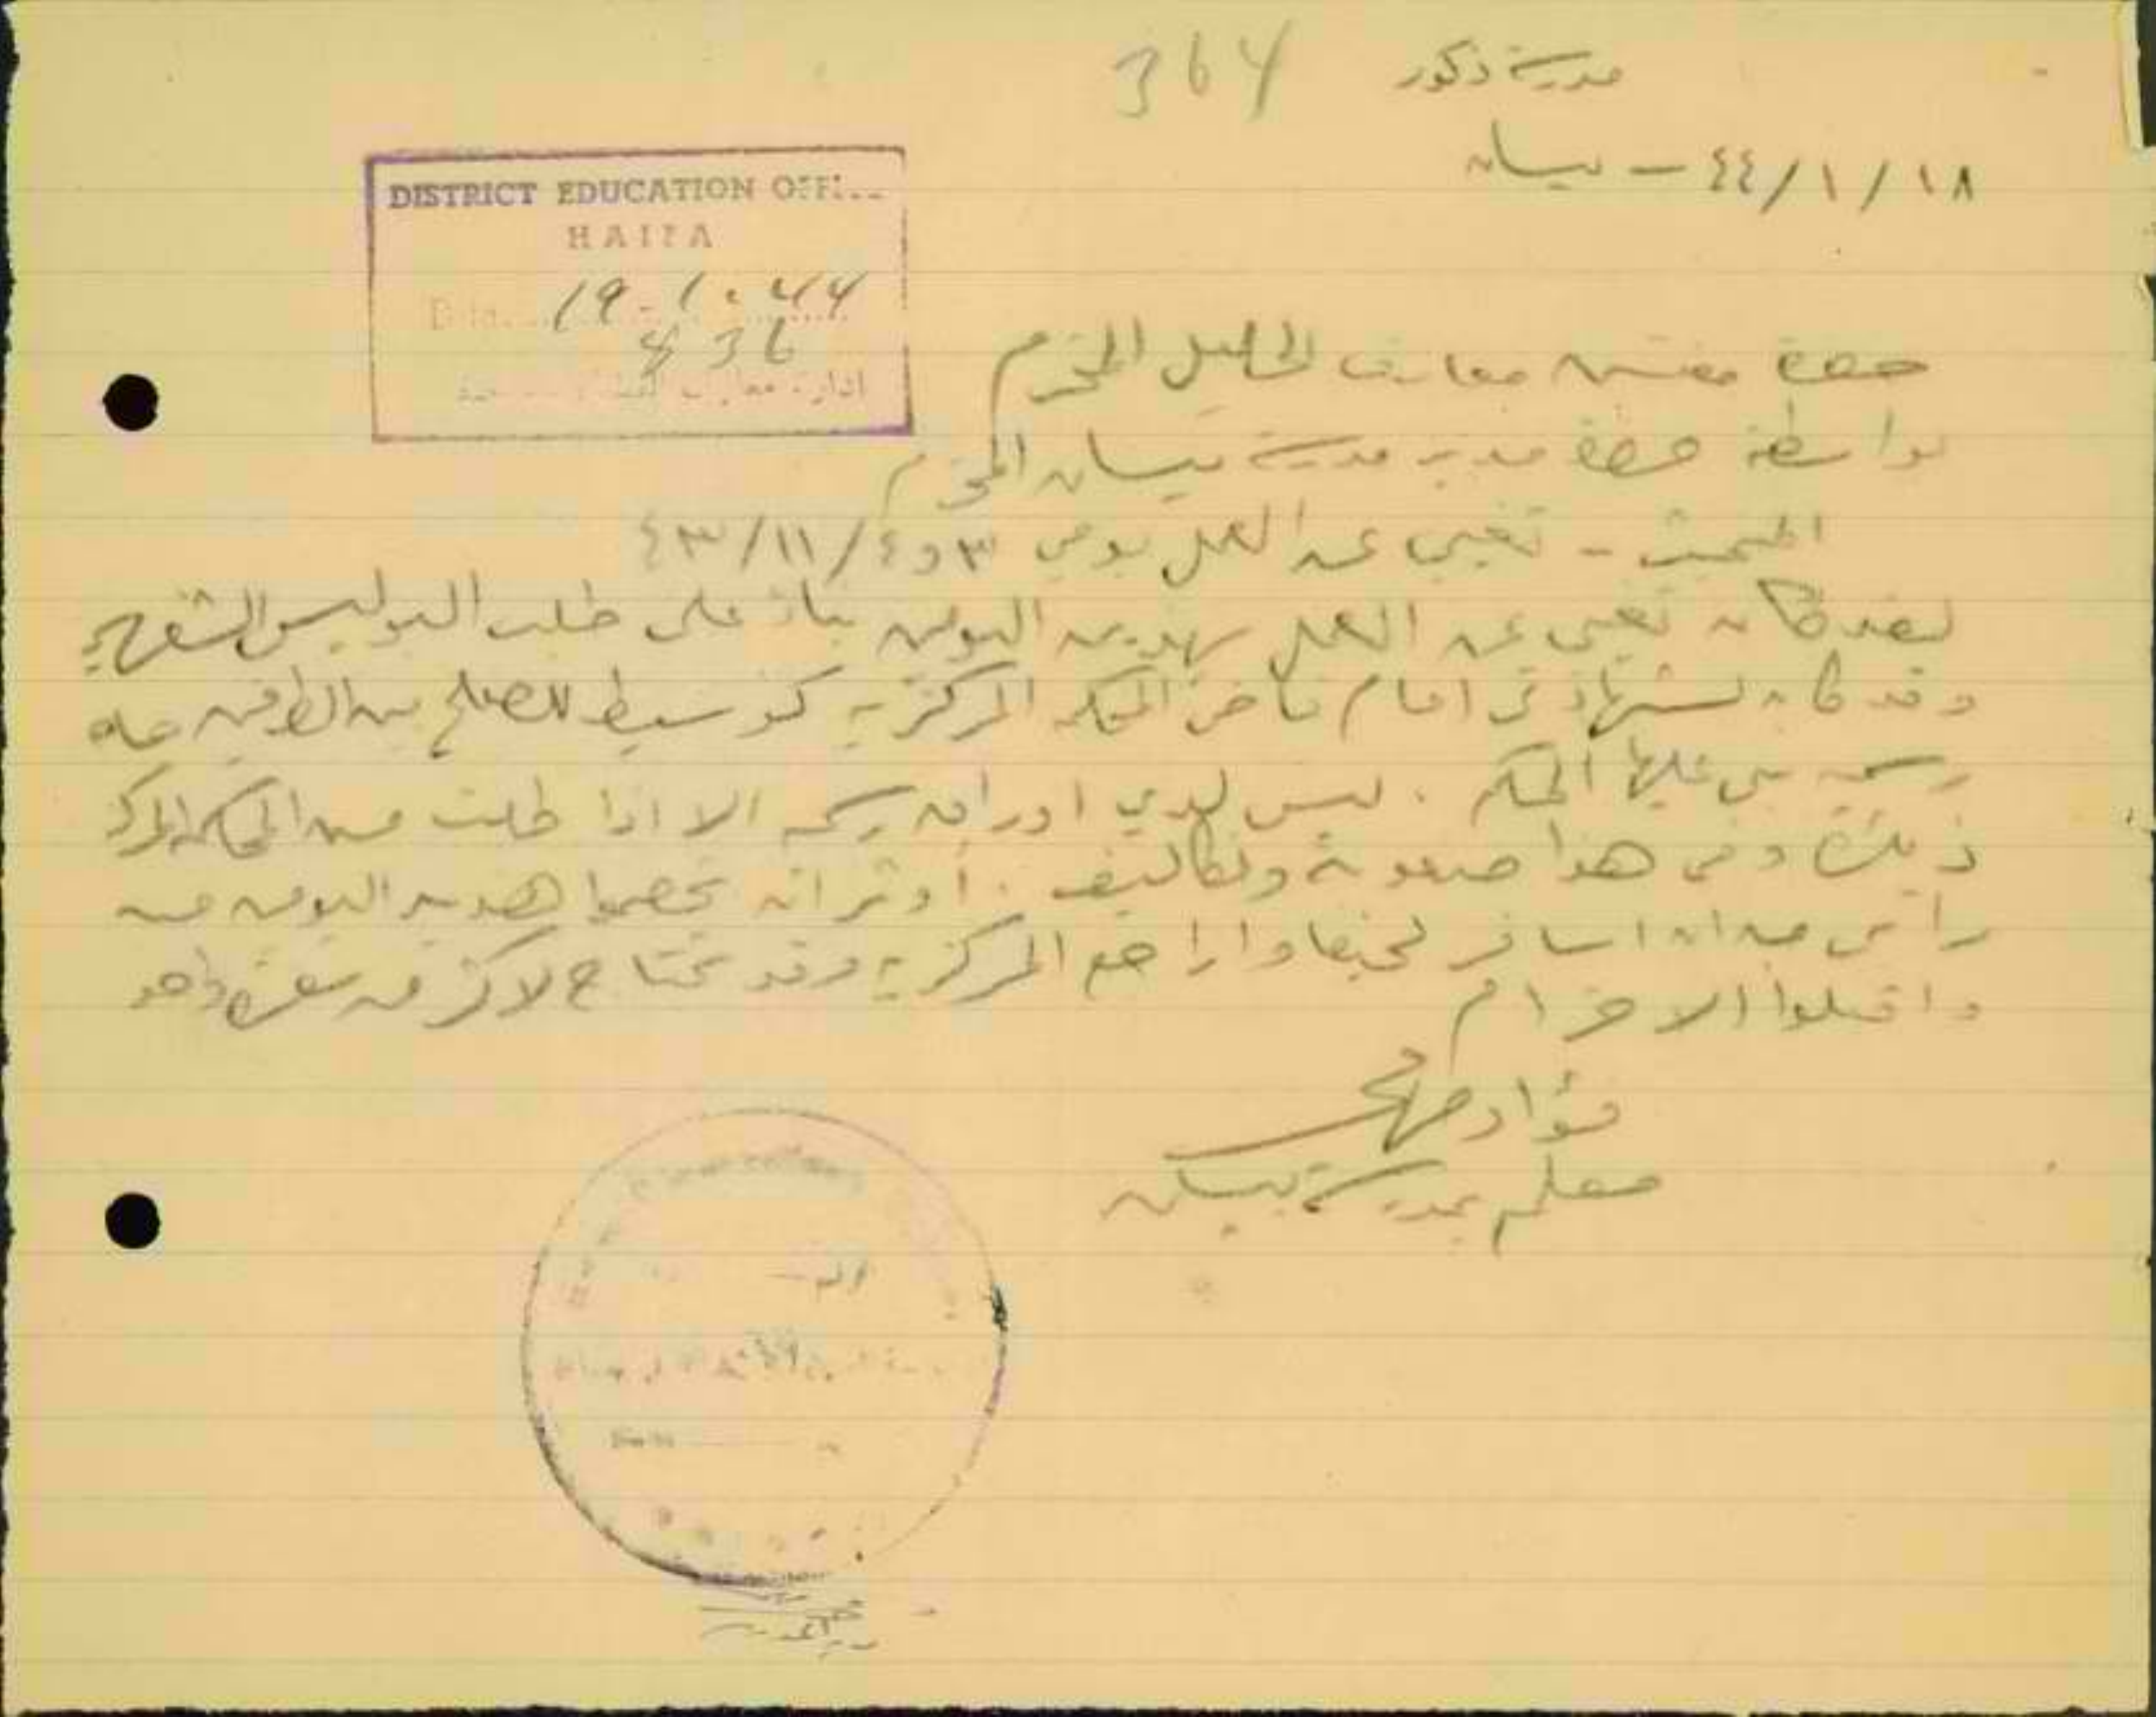 364
مدرسة ذكور
١٨/١/٤٤ – بيسان
DISTRICT EDUCATION
HAIFA
19.1.44
836
ادارة معارف
حضرة مفتش معارف الجليل المحترم
بواسطة حضرة مدير مدرسة بيسان المحترم
المبحث – تغيبي عن العمل يومي ٣ و٤/١١/٤٣
لقد كان تغيبي عن العمل بهذين اليومين بناء على طلب البوليس الشفهي
وقد كان لشهادتي امام قاضي المحكمه المركزيه كوسيط للصلح بين الطرفين
رسميه بني عليها الحكم . ليس لدي اوراق رسميه الا اذا طلبت من المحكمه المركزيه
ذلك وفي هذا صعوبة وتكاليف . أوثر ان تخصموا هذين اليومين من
راتبي من ان اسافر لحيفا واراجع المركزيه وقد تحتاج لاكثر من سفرة واحده
واقبلوا الاحترام
فؤاد
معلم بمدرسة بيسان
مدير المدرسة